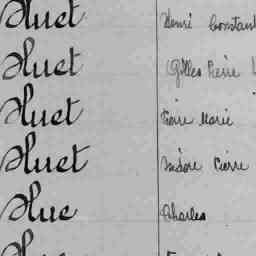 Huet Henri Constant
Huet Gilles Pierre
Huet Pierre Marie
Huet Isidore Pierre
Hue Charles